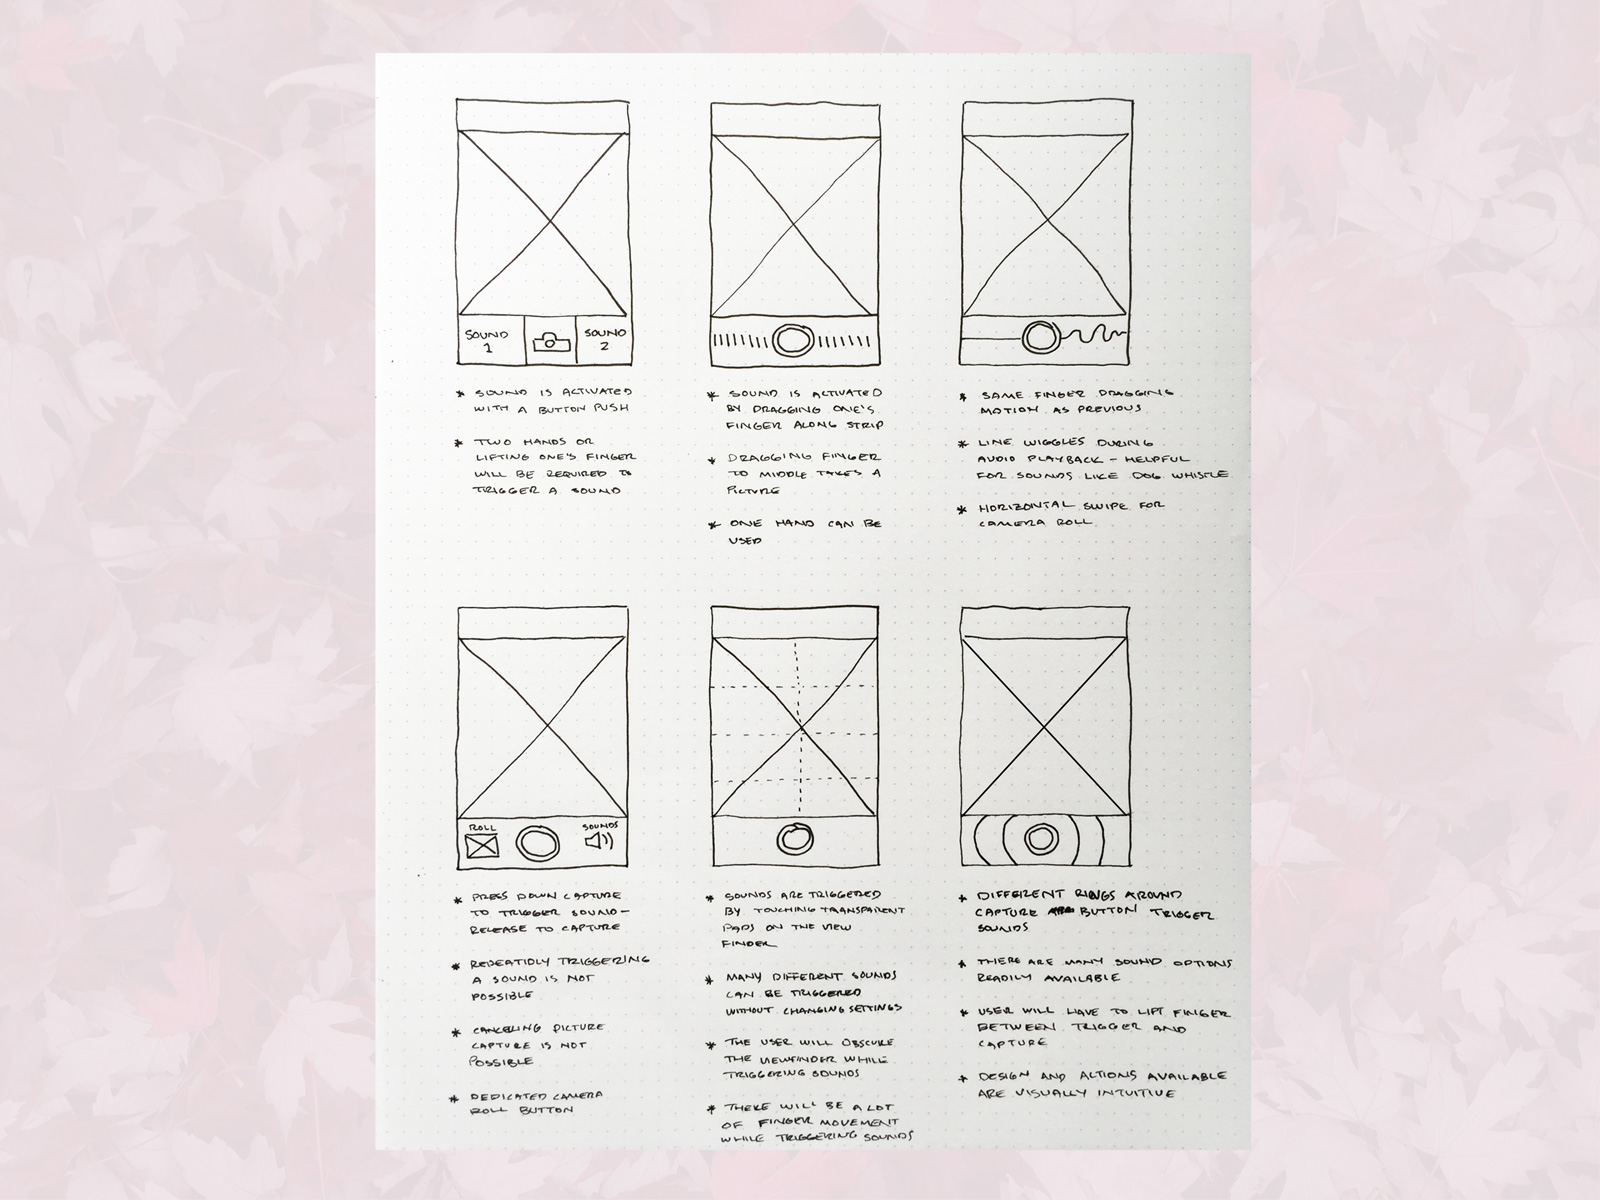 SOUND
1
SOUND
2
* SOUND IS ACTIVATED
WITH A BUTTON PUSH
* TWO HANDS OR
LIFTING ONE'S FINGER
WILL BE REQUIRED TO
TRIGGER A SOUND
* SOUND IS ACTIVATED
BY DRAGGING ONE'S
FINGER ALONG STRIP
* DRAGGING FINGER
TO MIDDLE TAKES A
PICTURE
* ONE HAND CAN BE
USED
* SAME FINGER DRAGGING
MOTION AS PREVIOUS
* LINE WIGGLES DURING
AUDIO PLAYBACK - HELPFUL
FOR SOUNDS LIKE DOG WHISTLE
* HORIZONTAL SWIPE FOR
CAMERA ROLL
ROLL
SOUNDS
* PRESS DOWN CAPTURE
TO TRIGGER SOUND -
RELEASE TO CAPTURE
* REPEATIDLY TRIGGERING
A SOUND IS NOT
POSSIBLE
* CANCELING PICTURE
CAPTURE IS NOT
POSSIBLE
* DEDICATED CAMERA
ROLL BUTTON
* SOUNDS ARE TRIGGERED
BY TOUCHING TRANSPARENT
PADS ON THE VIEW
FINDER
* MANY DIFFERENT SOUNDS
CAN BE TRIGGERED
WITHOUT CHANGING SETTINGS
* THE USER WILL OBSCURE
THE VIEWFINDER WHILE
TRIGGERING SOUNDS
* THERE WILL BE A LOT
OF FINGER MOVEMENT
WHILE TRIGGERING SOUNDS
* DIFFERENT RINGS AROUND
CAPTURE BUTTON TRIGGER
SOUNDS
* THERE ARE MANY SOUND OPTIONS
READILY AVAILABLE
* USER WILL HAVE TO LIFT FINGER
BETWEEN TRIGGER AND
CAPTURE
* DESIGN AND ACTIONS AVAILABLE
ARE VISUALLY INTUITIVE